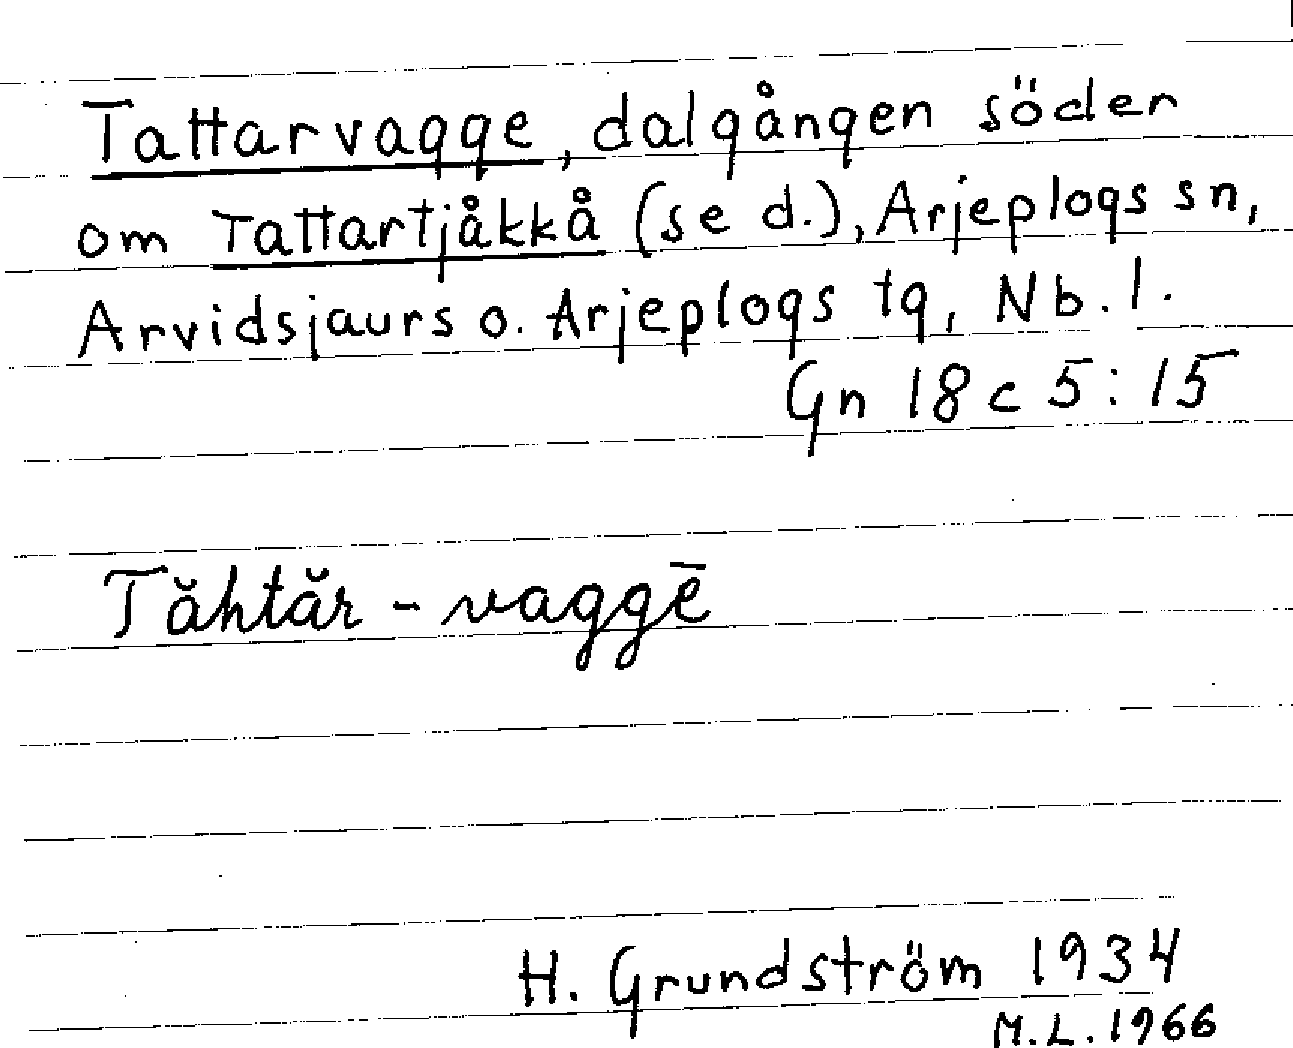 Tattarvagge, dalgången söder
om Tattartjåkkå (se d.), Arjeplogs sn,
Arvidsjaurs o. Arjeplogs tg, Nb. l.
Gn 18 c 5:15
Tăhtăr - vaggē
H. Grundström 1934
M.L. 1966